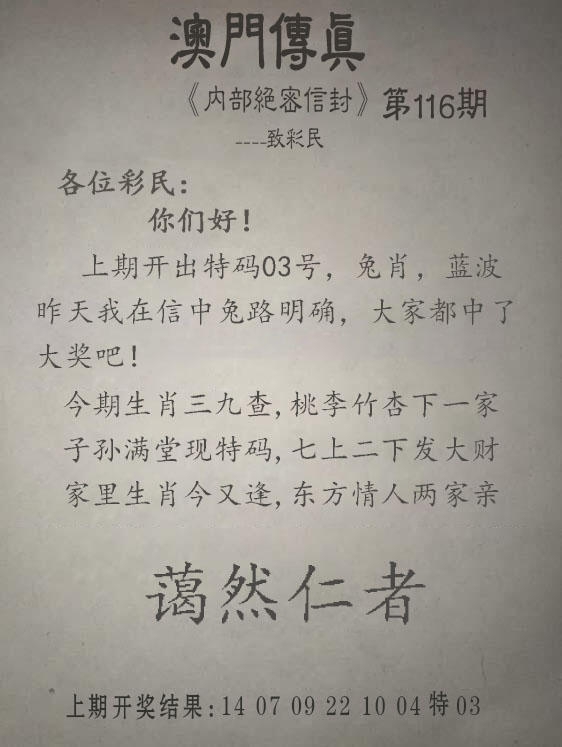 澳門傳真
《内部絕密信封》第116期
----致彩民
各位彩民：
你们好！
上期开出特码03号，兔肖，蓝波
昨天我在信中兔路明确，大家都中了
大奖吧！
今期生肖三九查,桃李竹杏下一家
子孙满堂现特码,七上二下发大财
家里生肖今又逢,东方情人两家亲
蔼然仁者
上期开奖结果:14 07 09 22 10 04特03